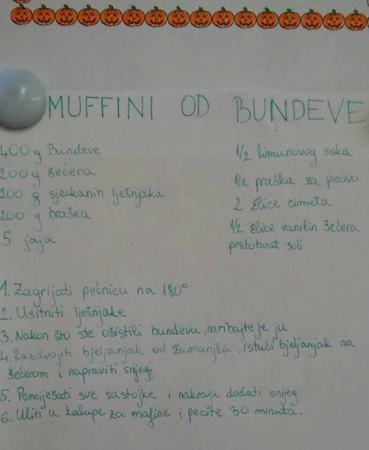 MUFFINI OD BUNDEVE
400 g Bundeve
200 g šećera
200 g sjeckanih lješnjaka
200 g brašna
5 jaja
1/2 limunovog soka
1/2 praška za pecivo
2 žlice cimeta
1/2 žlice vanilin šećera
prstohvat soli
1. Zagrijati pećnicu na 180°
2. Usitniti lješnjake
3. Nakon što ste očistili bundevu, naribajte je ju
4. Razdvojiti bjeljanjak od žumanjka, istući bjeljanjak na
šećerom i napraviti snijeg
5. Pomiješati sve sastojke i nakraju dodati snijeg
6. Uliti u kalupe za mafine i pecite 30 minuta.